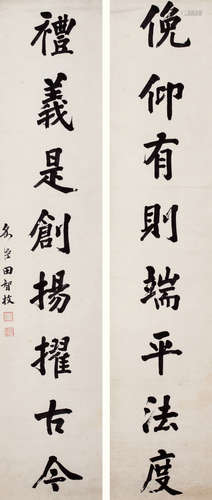 俛仰有則端平法度
禮義是創揚擢古今
田智枚